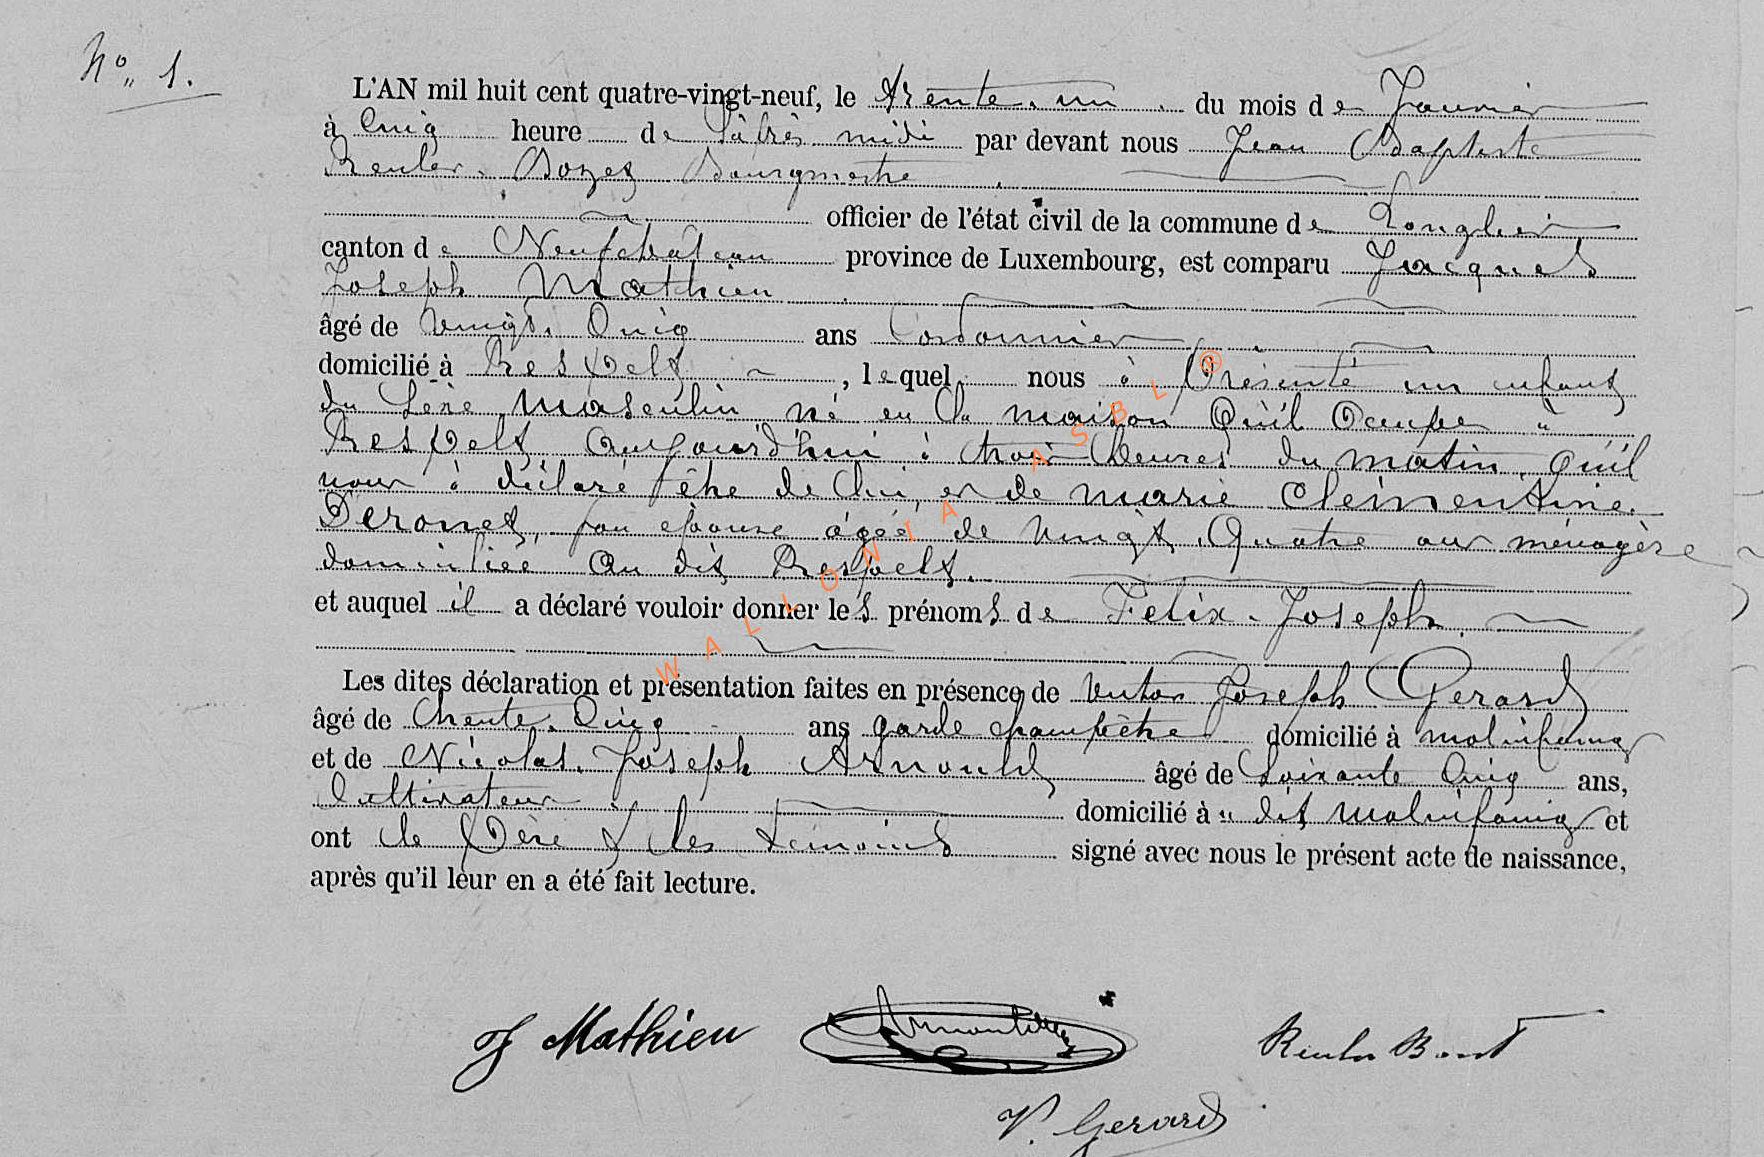 N° 1.
L'AN mil huit cent quatre-vingt-neuf, le trente-un du mois de Janvier
à cinq heure de l'après midi par devant nous Jean Baptiste
Reuler Bourgmestre
officier de l'état civil de la commune de Longlier
canton de Neufchâteau province de Luxembourg, est comparu Jacques
Joseph Mathieu
âgé de vingt. cinq ans Cordonnier
domicilié à Respelt, lequel nous à présenté un enfant
du sexe masculin né en la maison qu'il occupe à
Respelt aujourd'hui à trois heures du matin qu'il
nous à déclaré être de lui et de marie Clémentine
Deronet, son épouse âgée de vingt. quatre ans ménagère
domiciliée au dit Respelt.
et auquel il a déclaré vouloir donner les prénoms de Felix. Joseph.
Les dites déclaration et présentation faites en présence de Victor Joseph Gerard
âgé de trente. cinq ans garde champêtre domicilié à molinfaing
et de Nicolas. Joseph Arnould âgé de Soixante cinq ans,
Cultivateur domicilié à " dit molinfaing et
ont le Père & les témoins signé avec nous le présent acte de naissance,
après qu'il leur en a été fait lecture.
WALLONIA ASBL ®
J Mathieu Arnould Reuler
V. Gerard